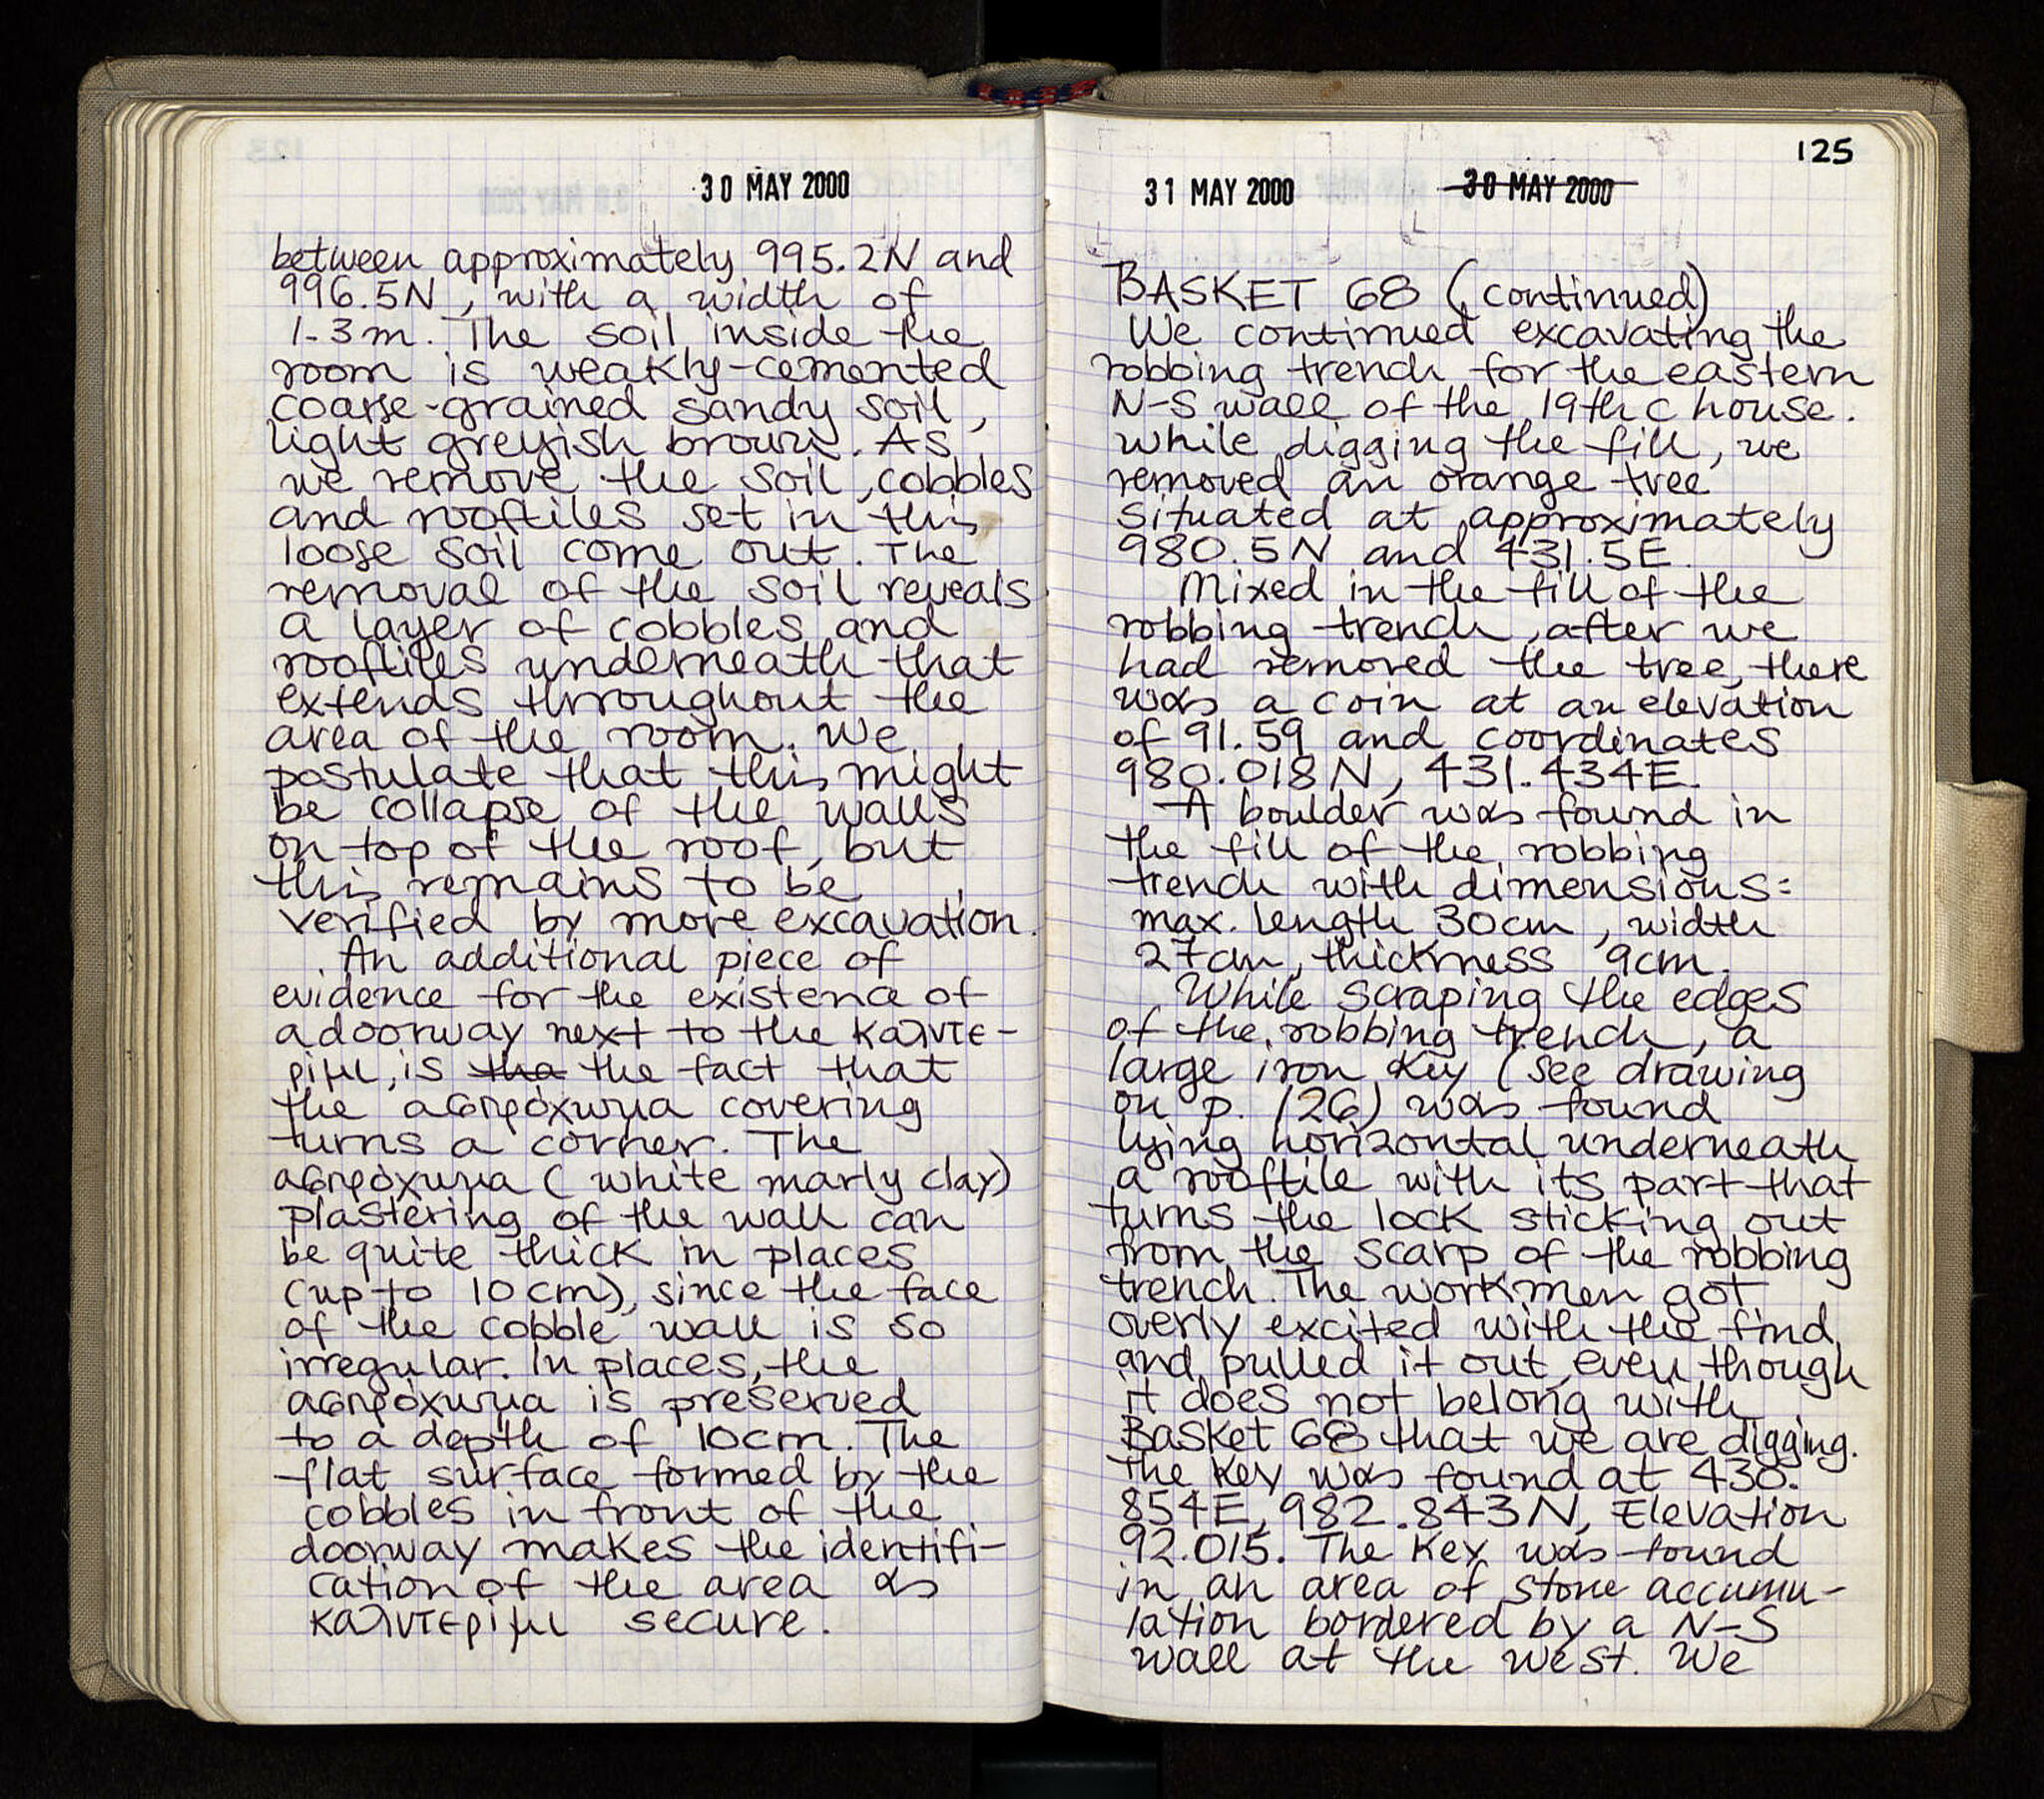 30 MAY 2000
between approximately 995.2N and
996.5N, with a width of
1.3m. The soil inside the
room is weakly-cemented
coarse-grained sandy soil,
light greyish brown. As
we remove the soil, cobbles
and rooftiles set in this
loose soil come out. The
removal of the soil reveals
a layer of cobbles and
rooftiles underneath that
extends throughout the
area of the room. We
postulate that this might
be collapse of the walls
on top of the roof, but
this remains to be
verified by more excavation.
An additional piece of
evidence for the existence of
a doorway next to the καλντε-
ρίμι, is tha the fact that
the ασπρόχωμα covering
turns a corner. The
ασπρόχωμα (white marly clay)
plastering of the wall can
be quite thick in places
(up to 10cm), since the face
of the cobble wall is so
irregular. In places, the
ασπρόχωμα is preserved
to a depth of 10cm. The
flat surface formed by the
cobbles in front of the
doorway makes the identifi-
cation of the area as
καλντερίμι secure.
125
31 MAY 2000 30 MAY 2000
BASKET 68 (continued)
We continued excavating the
robbing trench for the eastern
N-S wall of the 19th c house.
While digging the fill, we
removed an orange tree
situated at approximately
980.5N and 431.5E.
Mixed in the fill of the
robbing trench, after we
had removed the tree, there
was a coin at an elevation
of 91.59 and coordinates
980.018N, 431.434E.
A boulder was found in
the fill of the robbing
trench with dimensions:
max. length 30cm, width
27cm, thickness 9cm.
While scraping the edges
of the robbing trench, a
large iron key (see drawing
on p. 126) was found
lying horizontal underneath
a rooftile with its part that
turns the lock sticking out
from the scarp of the robbing
trench. The workmen got
overly excited with the find
and pulled it out, even though
it does not belong with
Basket 68 that we are digging.
The key was found at 430.
854E, 982.843N, Elevation
92.015. The key was found
in an area of stone accumu-
lation bordered by a N-S
wall at the west. We